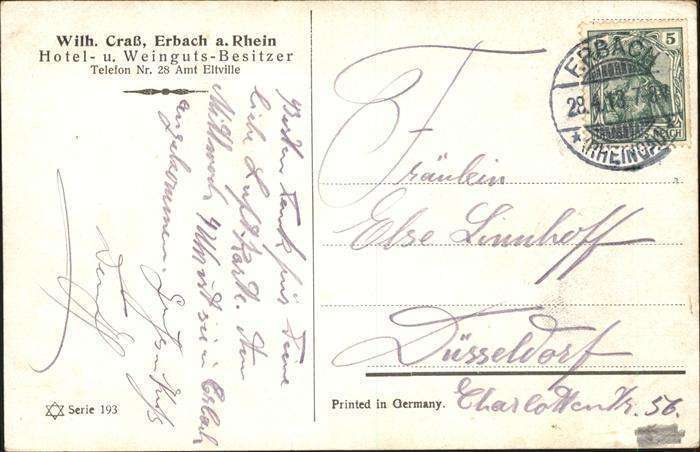 Wilh. Craß, Erbach a. Rhein
Hotel- u. Weinguts-Besitzer
Telefon Nr. 28 Amt Eltville
Besten Dank für Deine
liebe Luft Karte. Am
Mittwoch 4 Uhr ist sie in Erbach
angekommen.
Serie 193
5
ERBACH
28.4.13.7-8
(RHEINGAU)
Fräulein
Else Linnhoff
Düsseldorf
Charlottenstr. 56.
Printed in Germany.